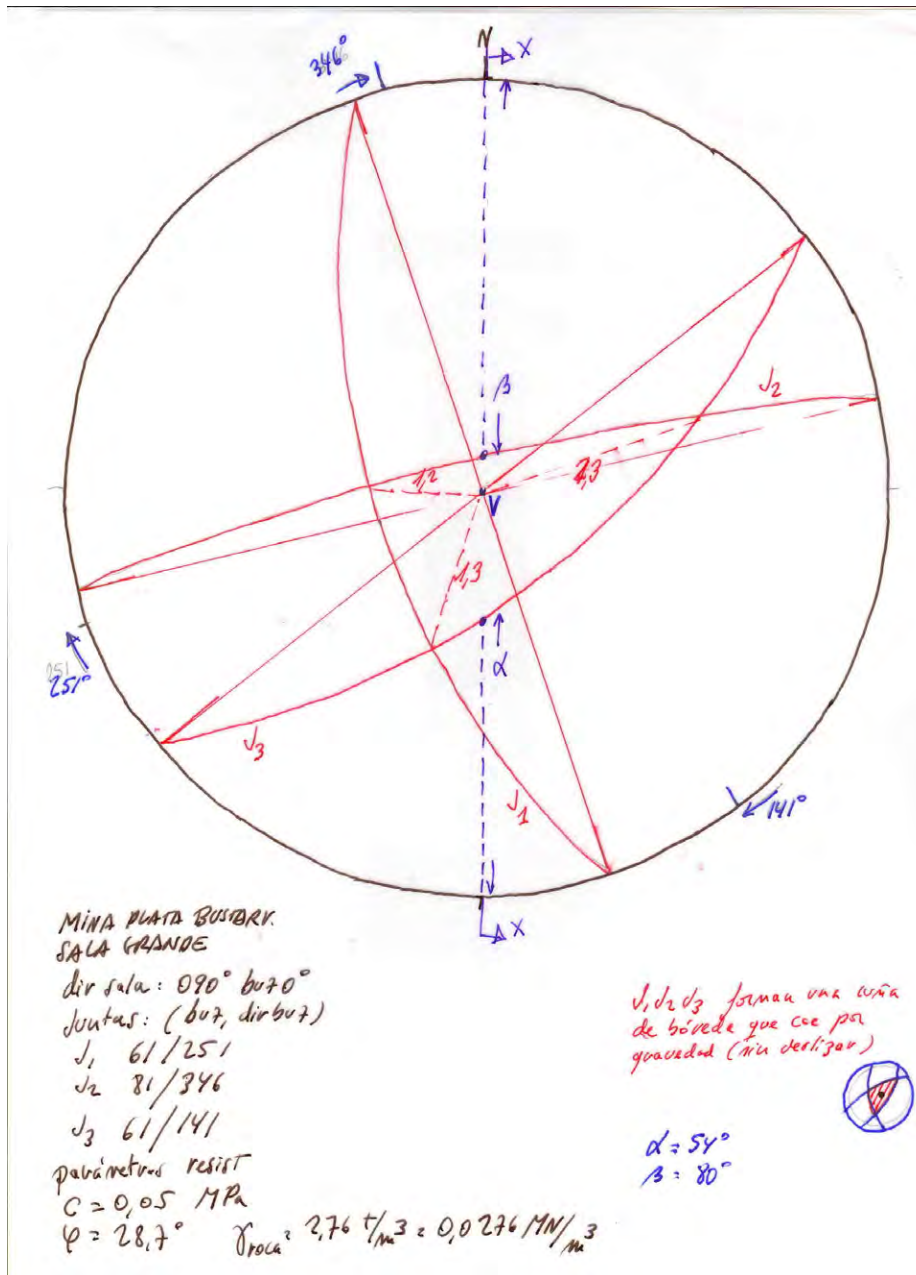 N
X
346°
β
J2
1,2
2,3
V
1,3
α
251
251°
J3
J1
141°
X
MINA PLATA BUSTARV.
SALA GRANDE
dir sala: 090° buz 0°
Juntas: (buz, dirbuz)
J1 61/251
J2 81/346
J3 61/141
parámetros resist
C = 0,05 MPa
φ = 28,7° γroca = 2,76 t/m³ = 0,0276 MN/m³
J1 J2 J3 forman una cuña
de bóveda que cae por
gravedad (sin deslizar)
α = 54°
β = 80°